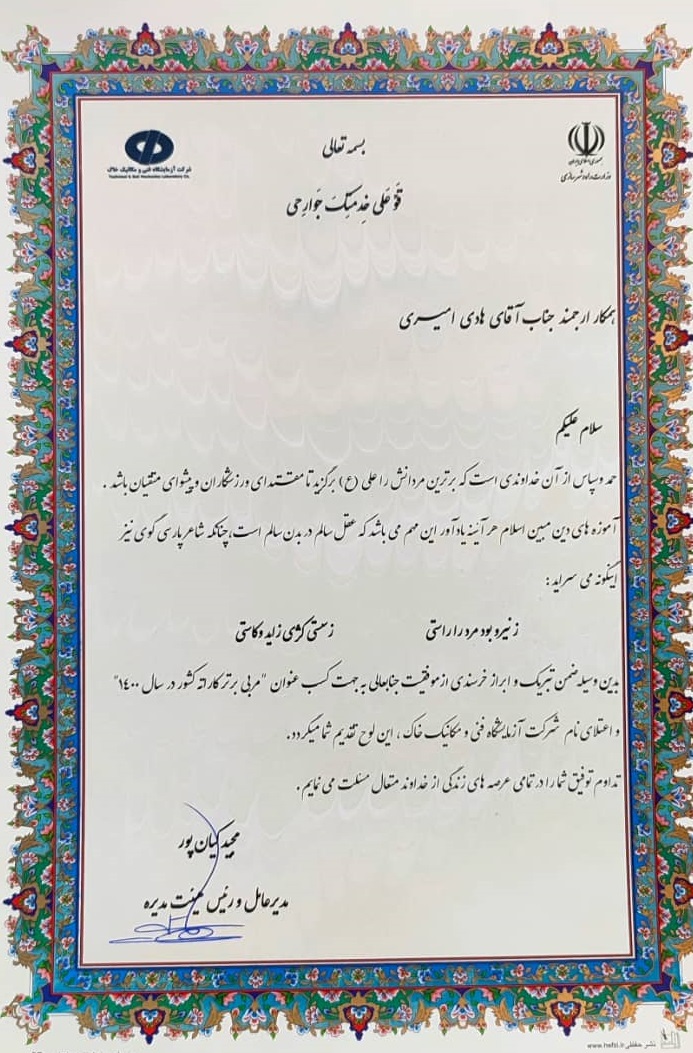 بسمه تعالی
شرکت آزمایشگاه فنی و مکانیک خاک
Technical & Soil Mechanics Laboratory Co.
جمهوری اسلامی ایران
وزارت راه و شهرسازی
قَوِّ عَلی خِدمَتِکَ جَوارِحی
همکار ارجمند جناب آقای هادی امیری
سلام علیکم
حمد و سپاس از آن خداوندی است که برترین مردانش را علی (ع) برگزید تا مقتدای ورزشکاران و پیشوای متقیان باشد .
آموزه های دین مبین اسلام هر آئینه یادآور این مهم می باشد که عقل سالم در بدن سالم است، چنانکه شاعر پارسی گوی نیز
اینگونه می سراید :
ز نیرو بود مرد را راستی
ز سستی کژی زاید و کاستی
بدین وسیله ضمن تبریک و ابراز خرسندی از موفقیت جنابعالی به جهت کسب عنوان "مربی برتر کاراته کشور در سال ۱۴۰۰"
و اعتلای نام شرکت آزمایشگاه فنی و مکانیک خاک ، این لوح تقدیم شما میگردد.
تداوم توفیق شما را در تمامی عرصه های زندگی از خداوند متعال مسئلت می نمایم .
مجید کیان پور
مدیرعامل و رئیس هیئت مدیره
نشر حفظی www.hefzi.ir